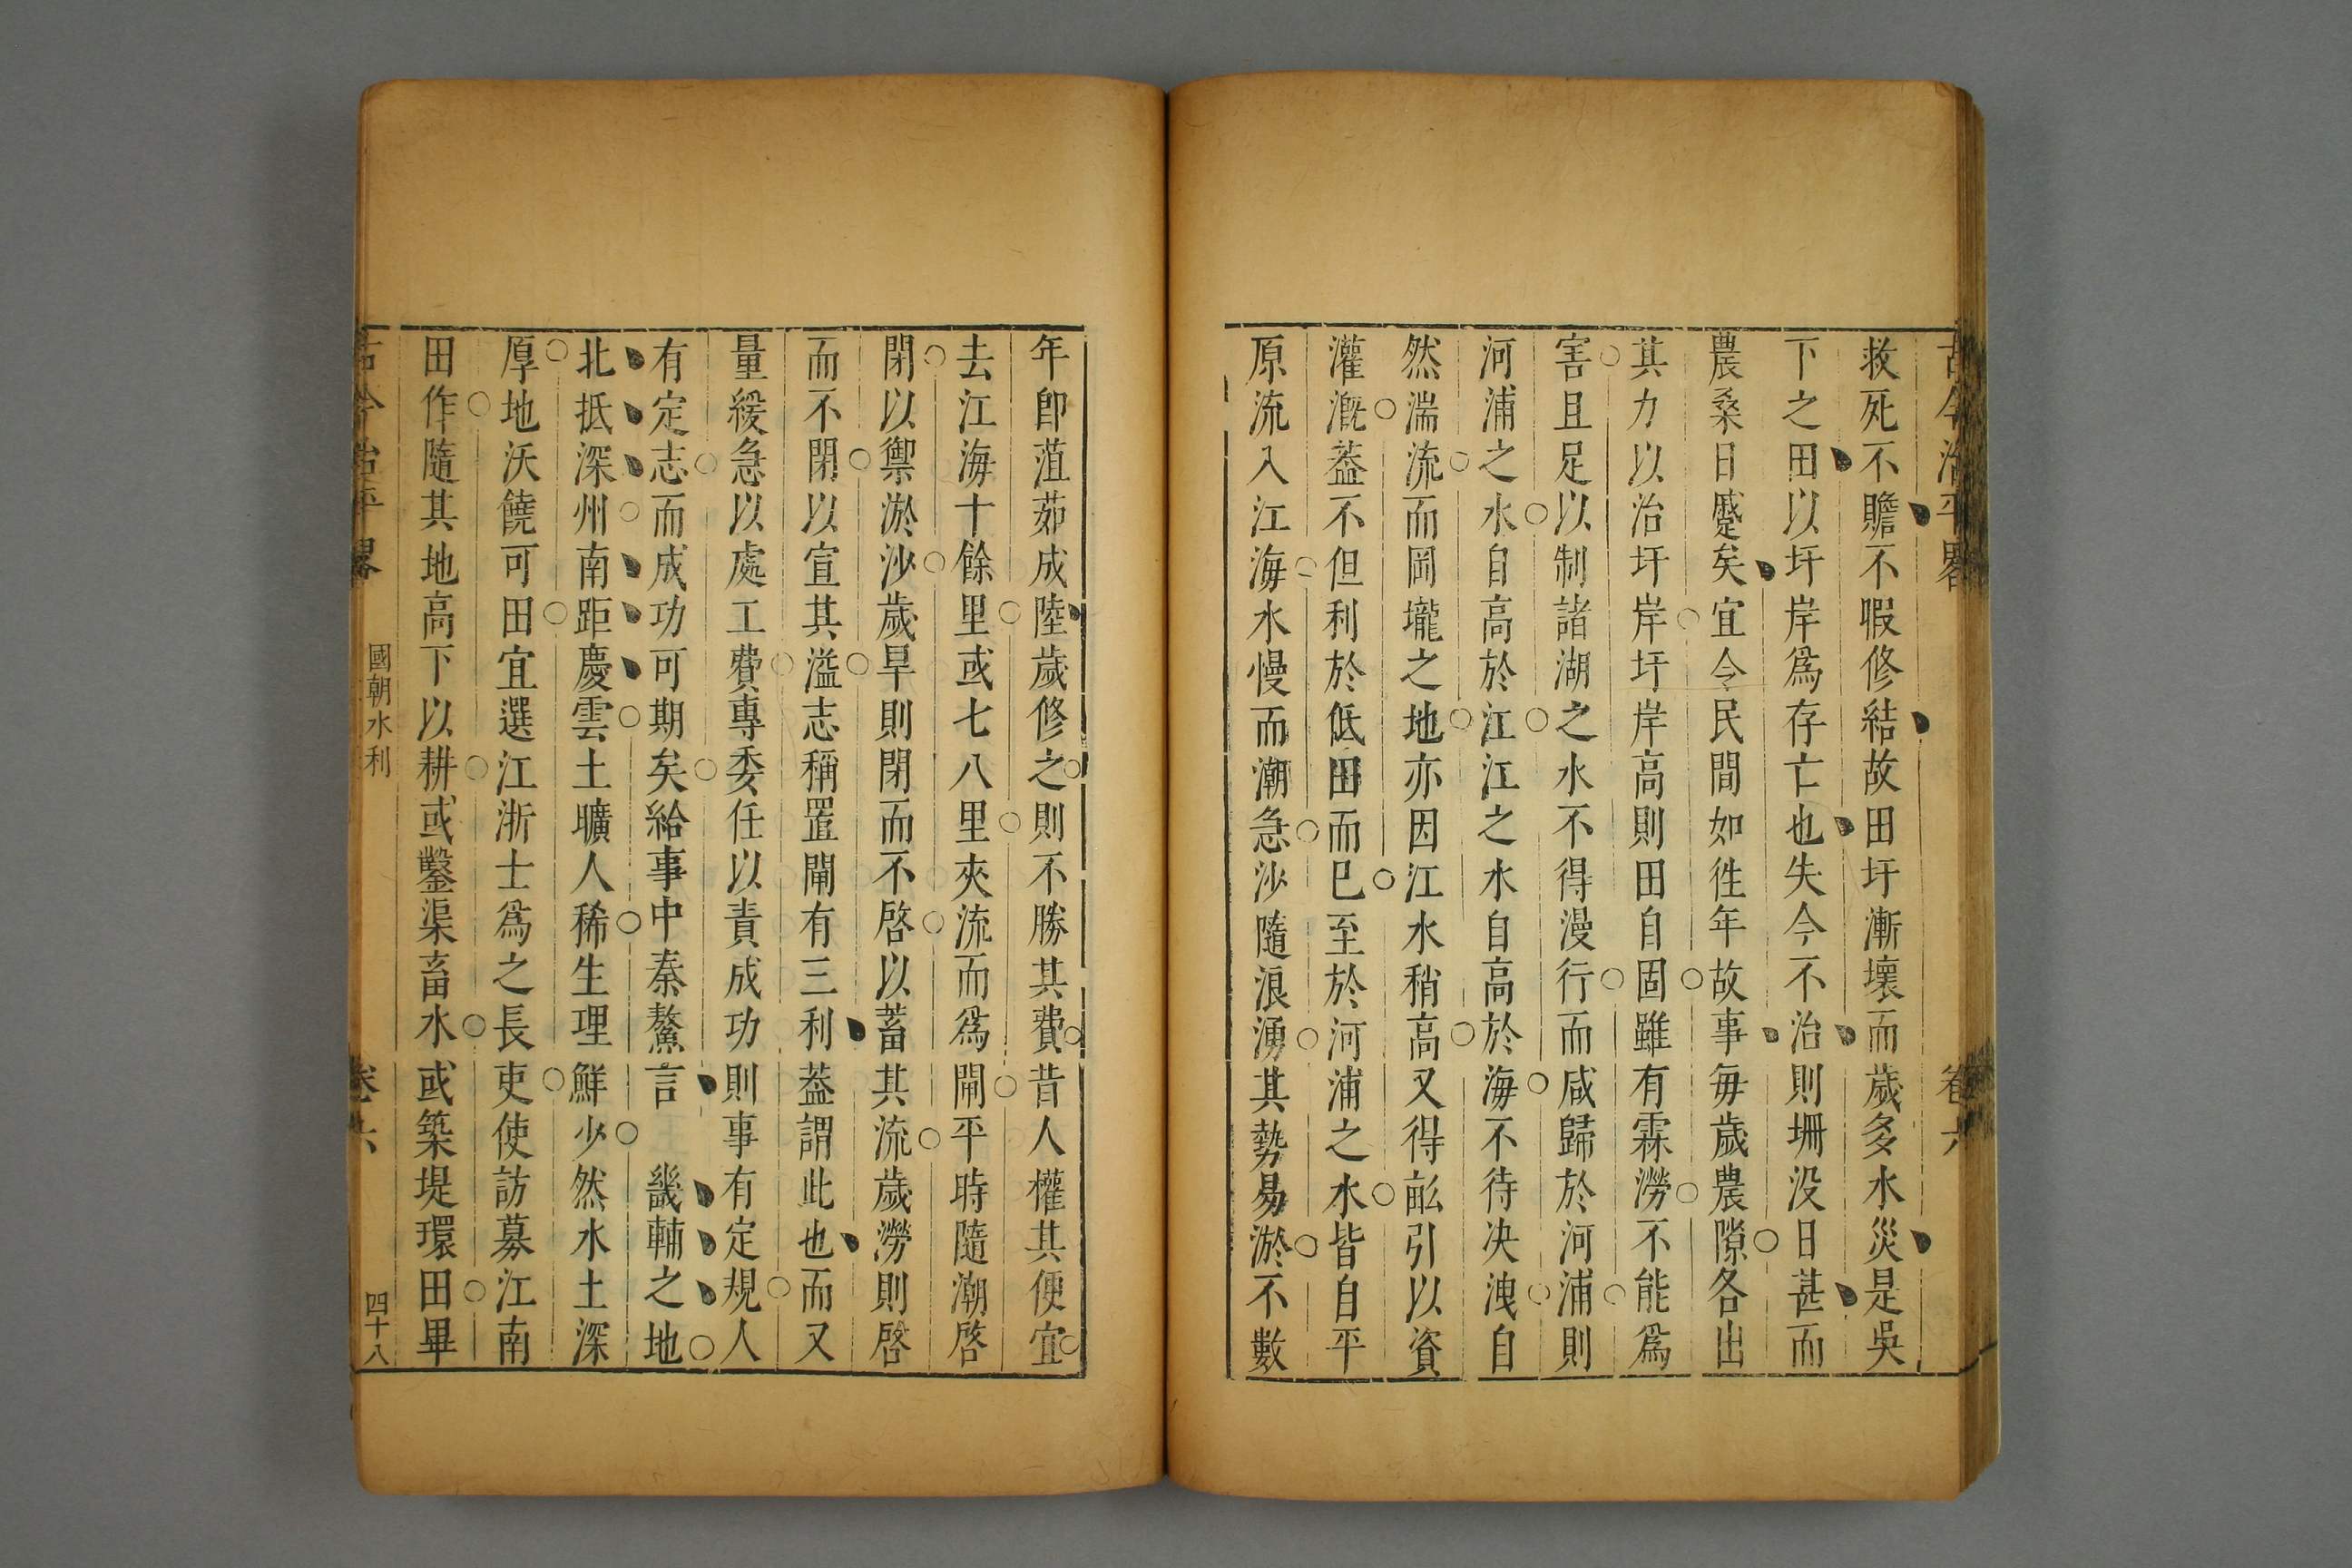 古今治平畧
卷六
救死不贍不暇修結故田圩漸壞而歲多水災是吳
下之田以圩岸爲存亡也失今不治則坍没日甚而
農桑日蹙矣宜令民間如徃年故事每歲農隙各出
其力以治圩岸圩岸高則田自固雖有霖澇不能爲
害且足以制諸湖之水不得漫行而咸歸於河浦則
河浦之水自高於江江之水自高於海不待决洩自
然湍流而岡壠之地亦因江水稍高又得畝引以資
灌漑葢不但利於低田而巳至於河浦之水皆自平
原流入江海水慢而潮急沙隨浪湧其勢易淤不數
年卽葅茹成陸歲修之則不勝其費昔人權其便宜
去江海十餘里或七八里夾流而爲閘平時隨潮啓
閉以禦淤沙歲旱則閉而不啓以蓄其流歲澇則啓
而不閉以宣其溢志稱置閘有三利葢謂此也而又
量緩急以處工費專委任以責成功則事有定規人
有定志而成功可期矣給事中秦鰲言 畿輔之地
北抵深州南距慶雲土曠人稀生理鮮少然水土深
厚地沃饒可田宜選江浙士爲之長吏使訪募江南
田作隨其地高下以耕或鑿渠畜水或築堤環田畢
古今治平畧
國朝水利
卷六
四十八